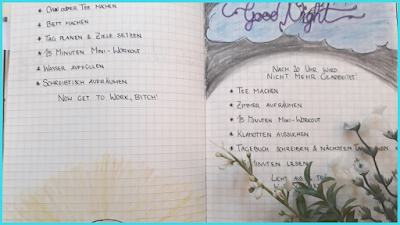 Chai oder Tee machen
Bett machen
Tag planen & Ziele setzen
15 Minuten Mini-Workout
Wasser auffüllen
Schreibtisch aufräumen
Now get to work, bitch!
Good Night
Nach 20 Uhr wird
nicht mehr gearbeitet!
Tee machen
Zimmer aufräumen
15 Minuten Mini-Workout
Klamotten aussuchen
Tagebuch schreiben & nächsten Tag
Minuten lesen
Licht aus &